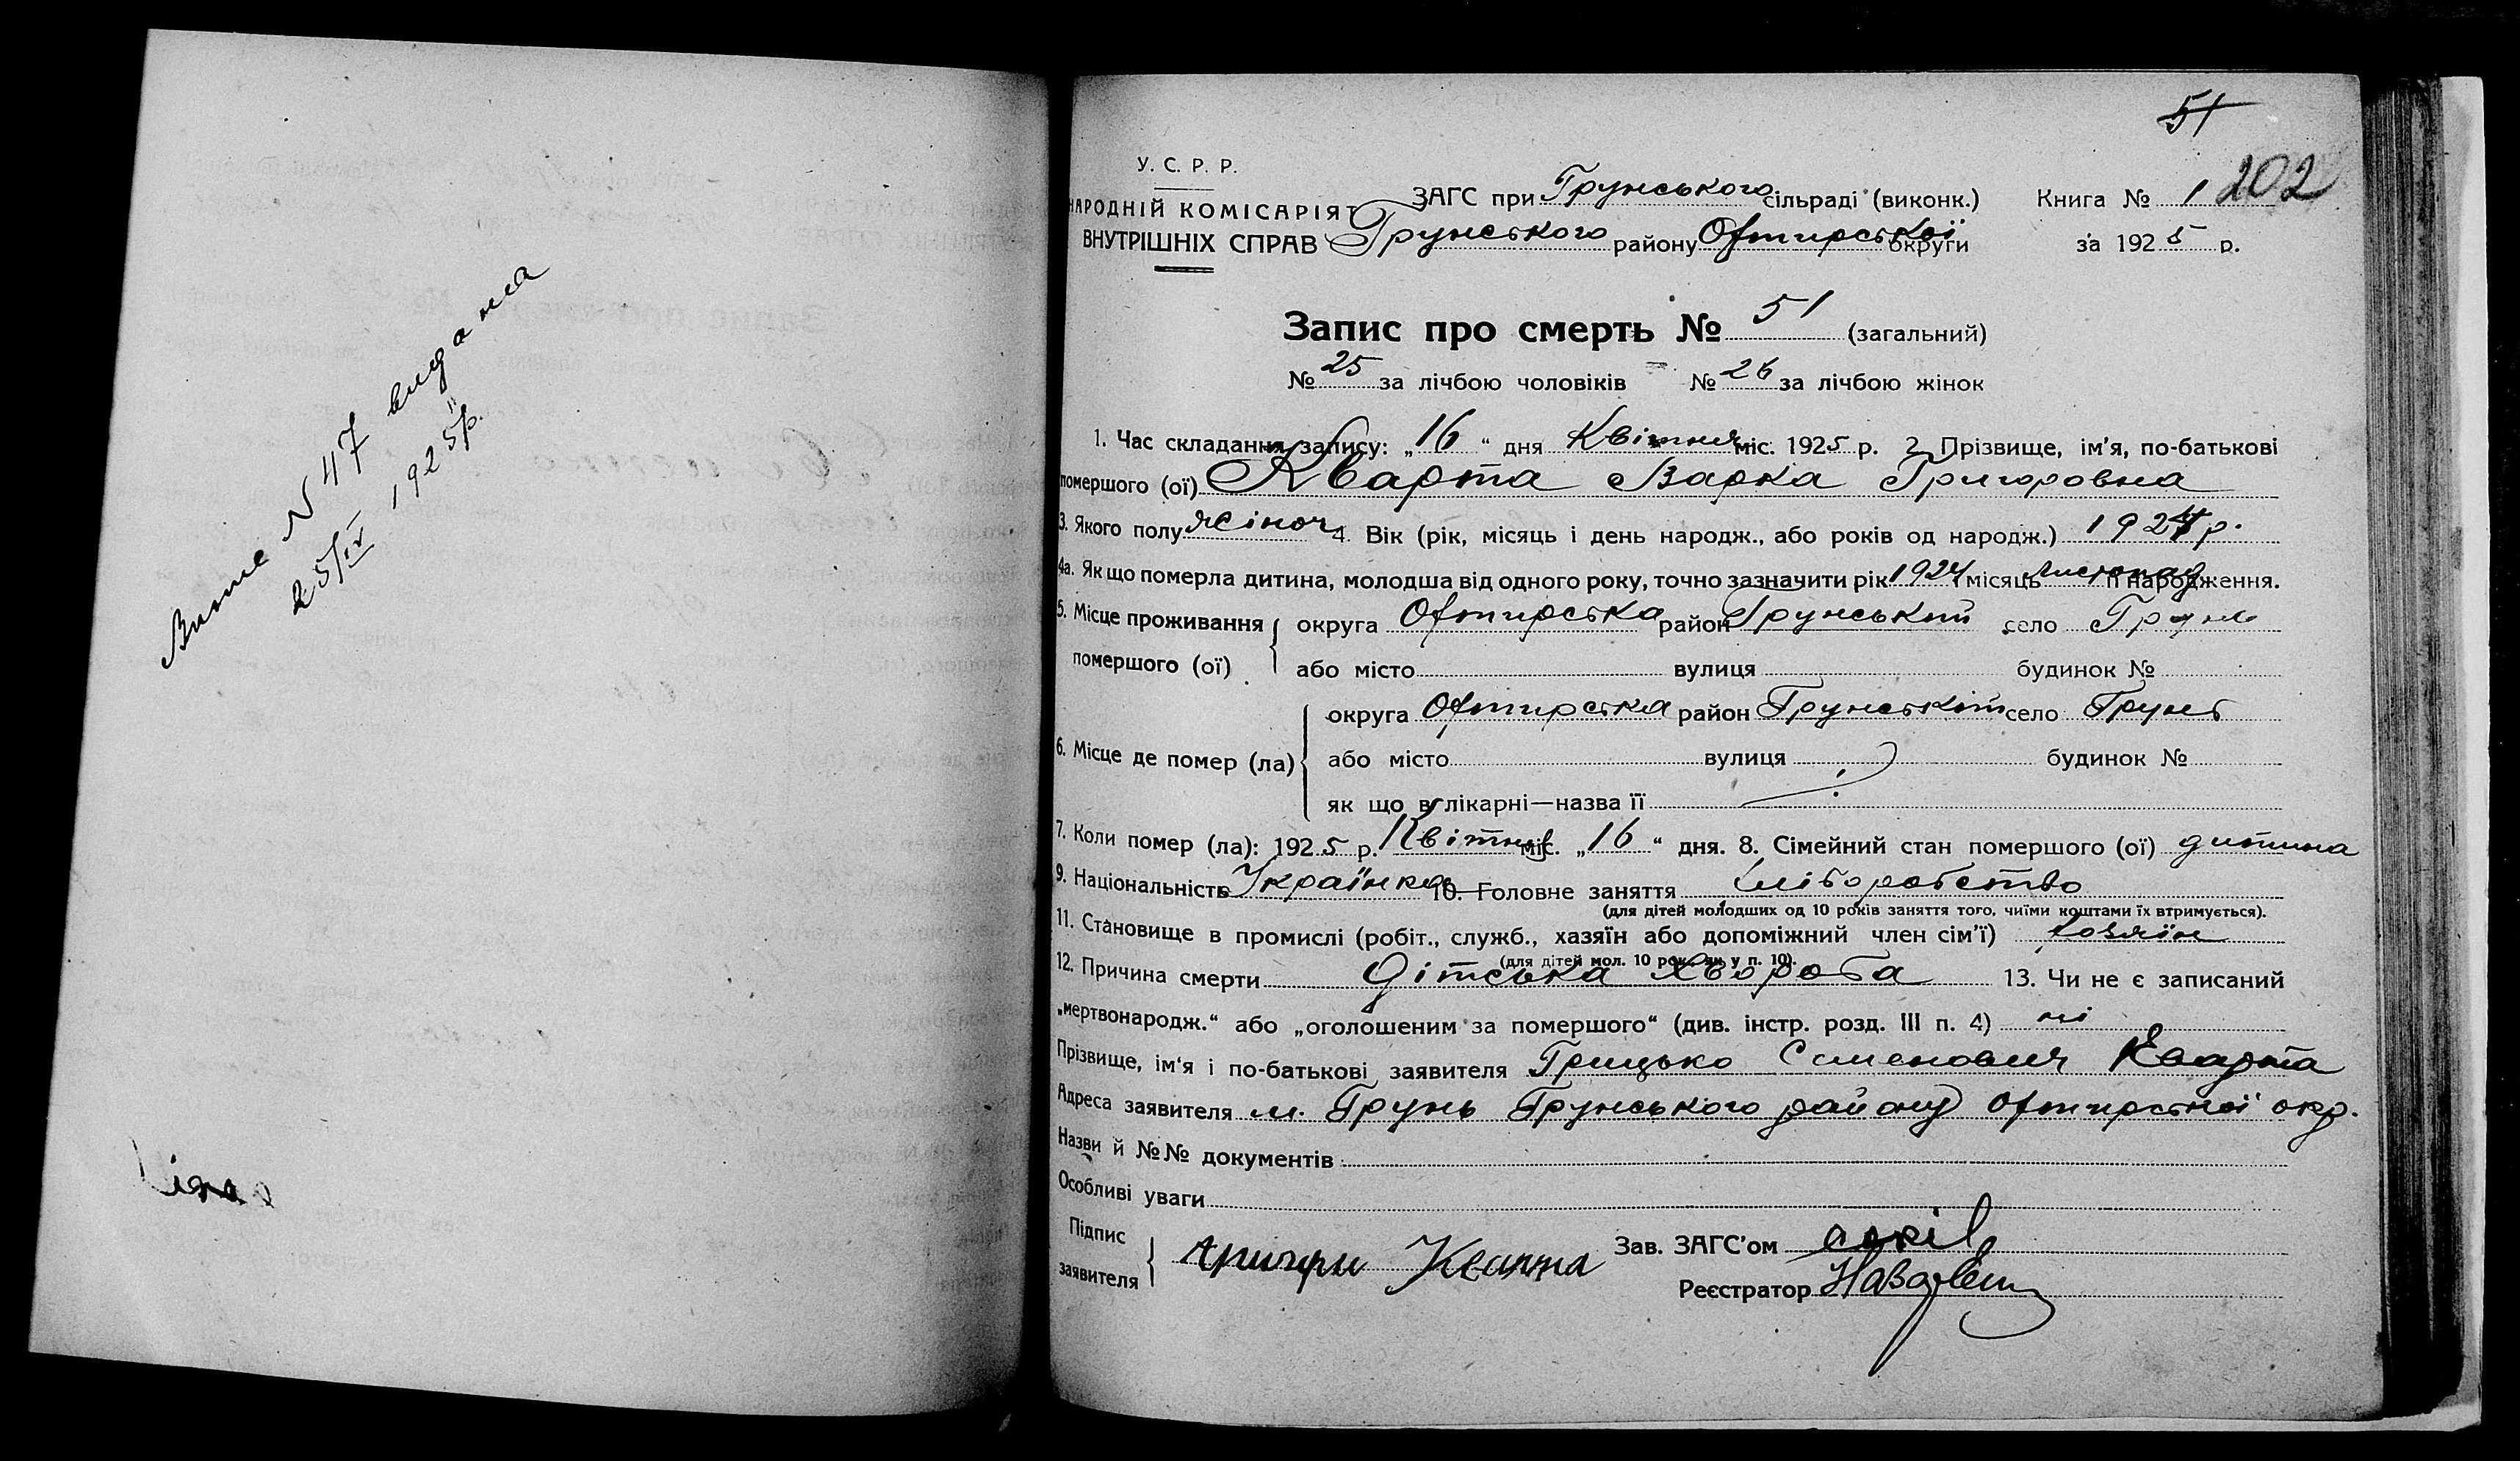 Випис N 47 видана
25/IV 1925 р.
51
202
У. С. Р. Р.
НАРОДНІЙ КОМІСАРІЯТ
ВНУТРІШНІХ СПРАВ
ЗАГС при Грунського сільраді (виконк.) Книга № 1
Грунського району Охтирської округи за 1925 р.
Запис про смерть № 51 (загальний)
№ 25 за лічбою чоловіків № 26 за лічбою жінок
1. Час складання запису: „16“ дня Квітня міс. 1925 р. 2. Прізвище, ім'я, по-батькові
помершого (ої) Кварта Варка Григоровна
3. Якого полу жіноч 4. Вік (рік, місяць і день народж., або років од народж.) 1924 р.
4а. Як що померла дитина, молодша від одного року, точно зазначити рік 1924 місяць Листопад її народження.
5. Місце проживання помершого (ої) округа Охтирська район Грунський село Грунь
або місто вулиця будинок №
6. Місце де помер (ла) округа Охтирська район Грунській село Грунь
або місто вулиця будинок №
як що в лікарні—назва її
7. Коли помер (ла): 1925 р. Квітня міс. „16“ дня. 8. Сімейний стан помершого (ої) дитина
9. Національність Українка 10. Головне заняття хліборобство
(для дітей молодших од 10 років заняття того, чиїми коштами їх втримується).
11. Становище в промислі (робіт., служб., хазяїн або допоміжний член сім'ї) хозяїн
(для дітей мол. 10 рок. як у п. 10).
12. Причина смерти Дітська хвороба 13. Чи не є записаний
„мертвонародж.“ або „оголошеним за помершого“ (див. інстр. розд. III п. 4) ні
Прізвище, ім'я і по-батькові заявителя Грицько Семенович Кварта
Адреса заявителя м. Грунь Грунського району Охтирської окр.
Назви й №№ документів
Особливі уваги
Підпис заявителя Кварта Зав. ЗАГС'ом
Реєстратор